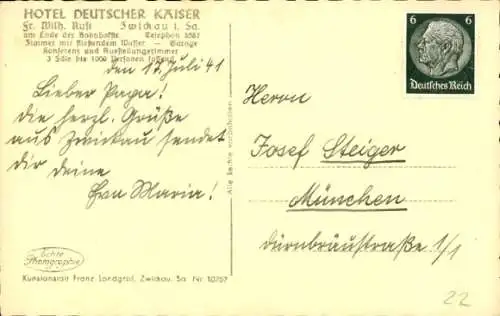 HOTEL DEUTSCHER KAISER
Fr. Wilh. Rust Zwickau i. Sa.
am Ende der Bahnhofstr. Telephon
Zimmer mit fließendem Wasser - Garage
Konferenz und Ausstellungszimmer
3 Säle bis 1000 Personen fassend
den 17. Juli 41
Lieber Papa!
Die herzl. Grüße
aus Zwickau sendet
dir deine
Frau Maria!
Echte
Photographie
Kunstanstalt Franz Landgraf, Zwickau, Sa. Nr. 10757
Alle Rechte vorbehalten
6 6
Deutsches Reich
Herrn
Josef Steiger
München
Dürnbräustraße 1/1
22